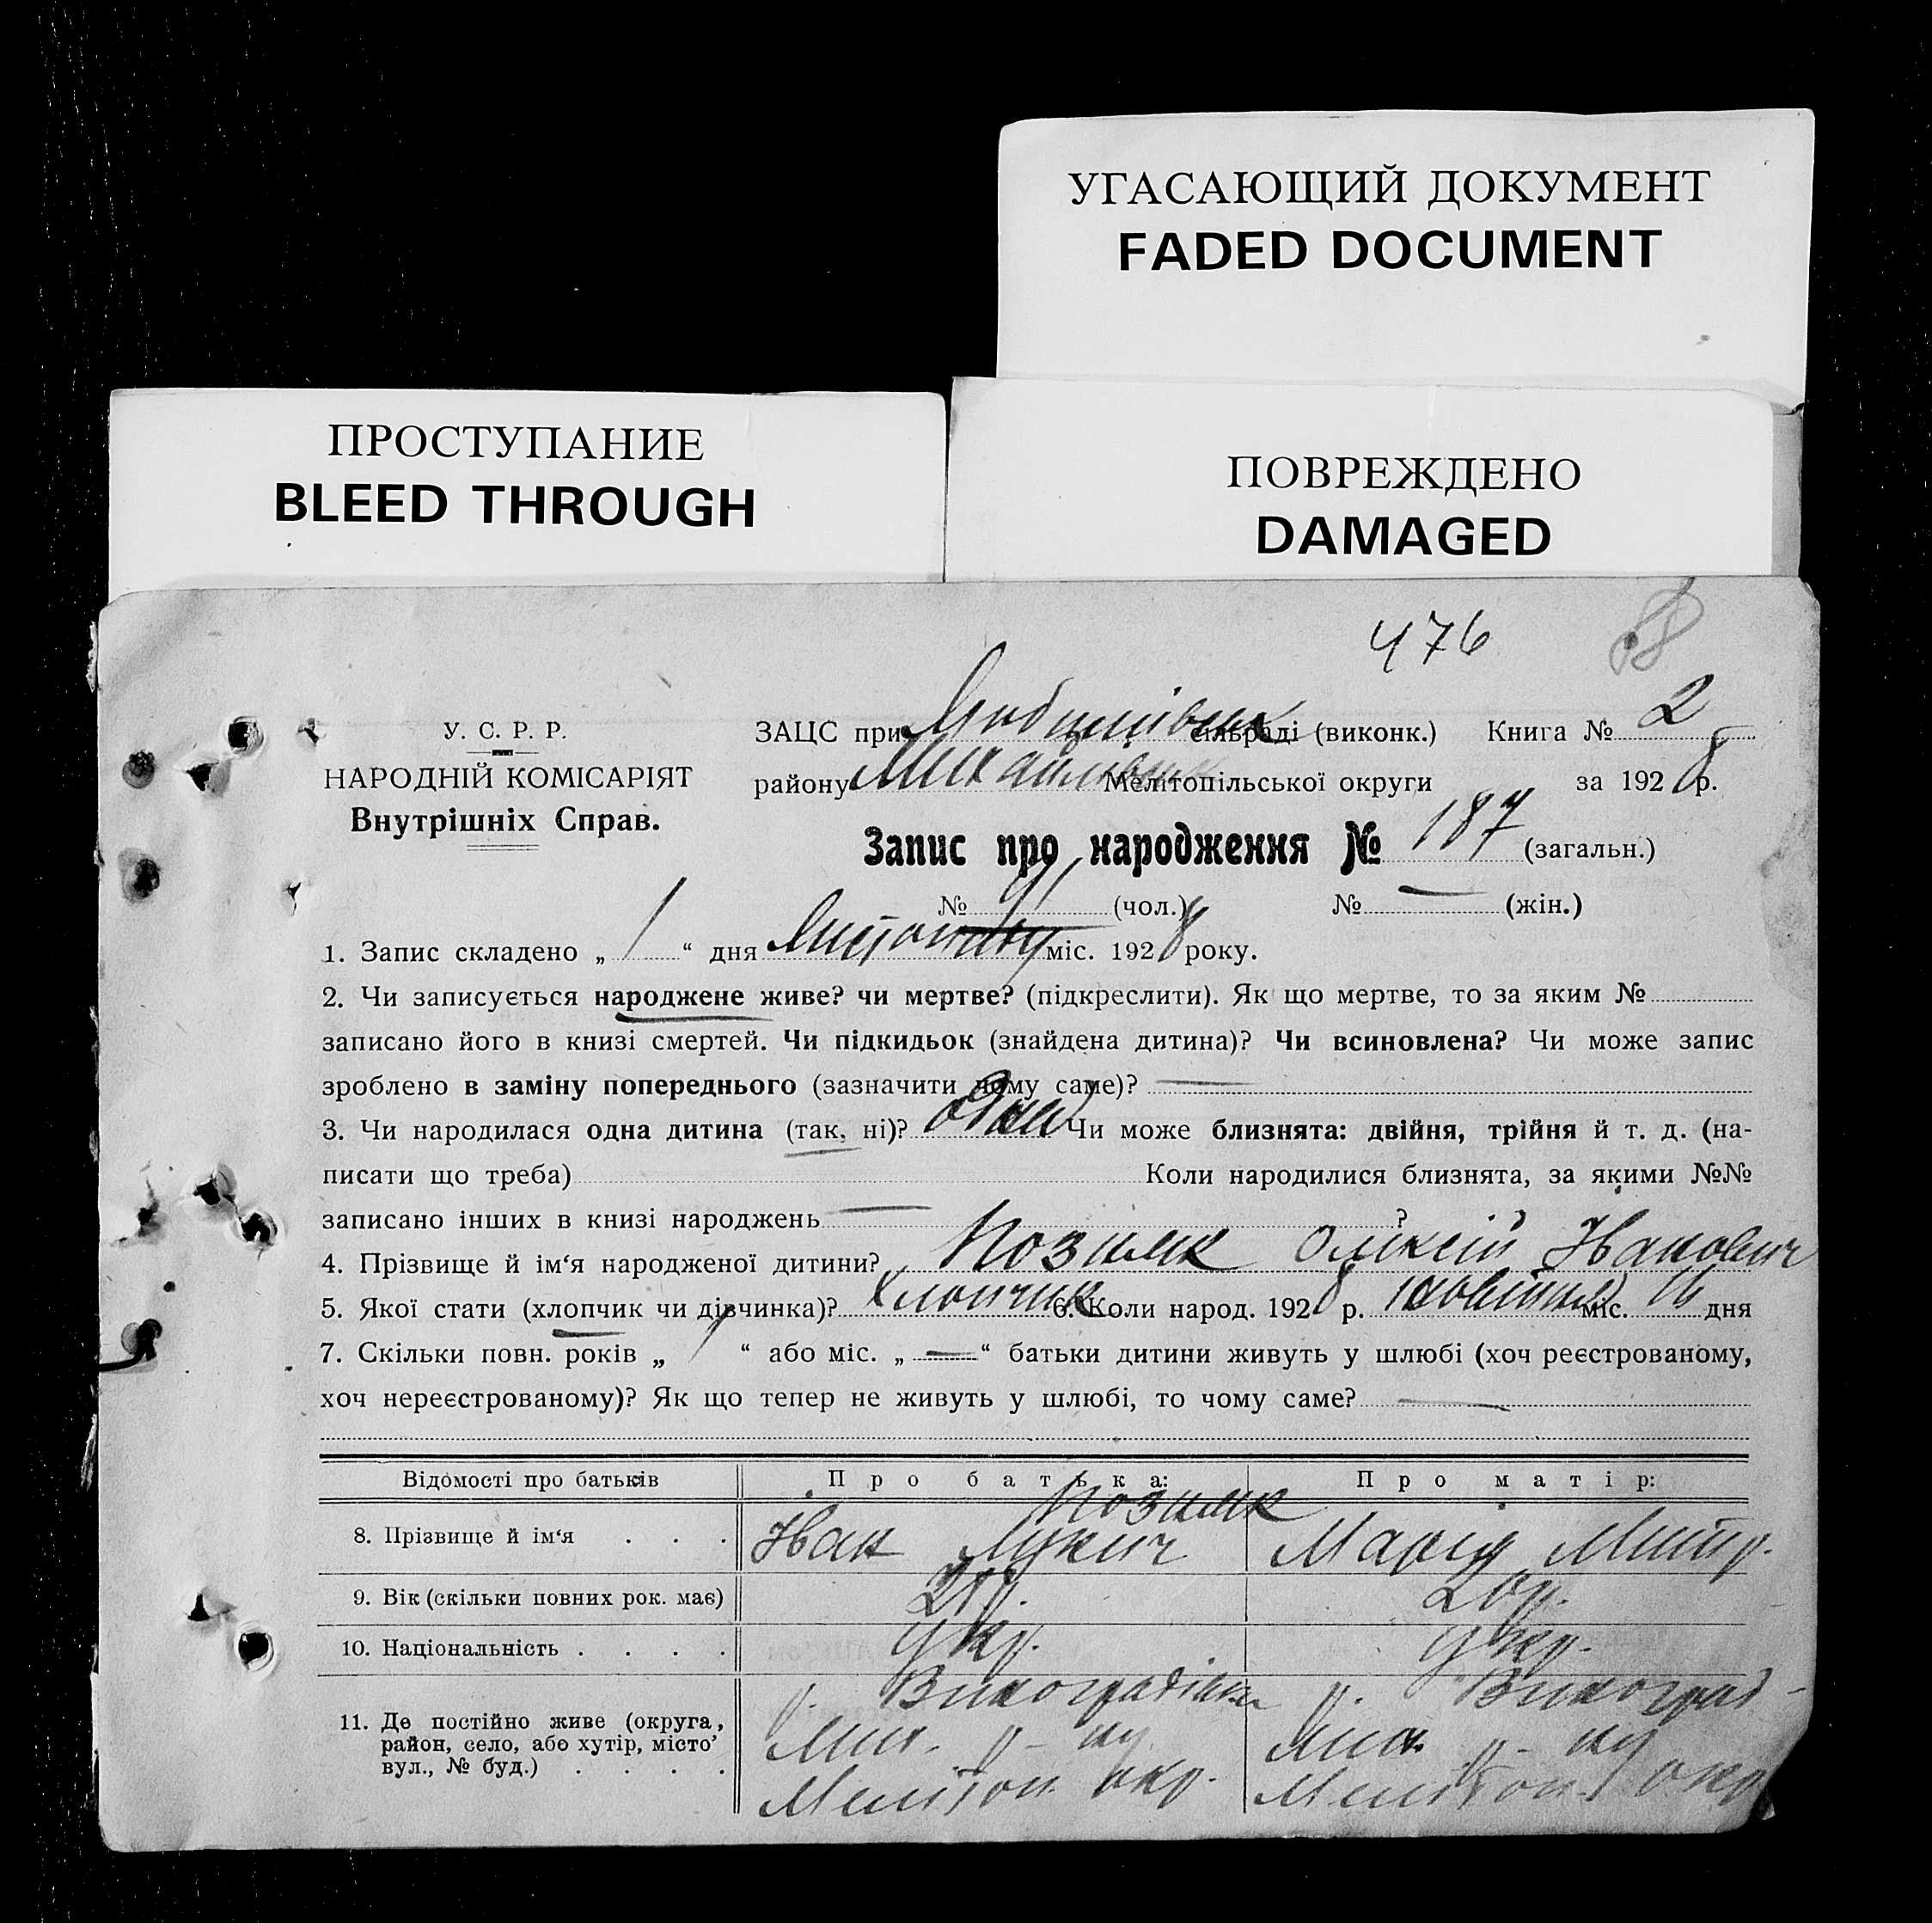 УГАСАЮЩИЙ ДОКУМЕНТ
FADED DOCUMENT
ПРОСТУПАНИЕ
BLEED THROUGH
ПОВРЕЖДЕНО
DAMAGED
476
У. С. Р. Р.
НАРОДНІЙ КОМІСАРІЯТ
Внутрішніх Справ.
ЗАЦС при сільраді (виконк.) Книга № 2
району Михайлівськ Мелітопільської округи за 1928 р.
Запис про народження № 187 (загальн.)
№ 91 (чол.) № — (жін.)
1. Запис складено „ 1 “ дня Листопаду міс. 1928 року.
2. Чи записується народжене живе? чи мертве? (підкреслити). Як що мертве, то за яким №
записано його в книзі смертей. Чи підкидьок (знайдена дитина)? Чи всиновлена? Чи може запис
зроблено в заміну попереднього (зазначити чому саме)? —
3. Чи народилася одна дитина (так, ні)? одна Чи може близнята: двійня, трійня й т. д. (на-
писати що треба) Коли народилися близнята, за якими №№
записано інших в книзі народжень — ?
4. Прізвище й ім‘я народженої дитини? Позняк Олексій Іванович
5. Якої стати (хлопчик чи дівчинка)? Хлопчик 6. Коли народ. 1928 р. жовтня міс. 16 дня
7. Скільки повн. років „ 1 “ або міс. „ — “ батьки дитини живуть у шлюбі (хоч реєстрованому,
хоч нереєстрованому)? Як що тепер не живуть у шлюбі, то чому саме? —
Відомості про батьків Про батька: Про матір:
Позняк
8. Прізвище й ім‘я . . . Іван Лукич Марія Митр.
9. Вік (скільки повних рок. має) 21 р. 20 р.
10. Національність . . . . Укр. Укр.
11. Де постійно живе (округа, район, село, або хутір, місто’ вул., № буд.) . . . .
Виноградівка
Мих. р-ну
Мелітоп. окр.
Виноград-
Мих. р-ну
Мелітоп. окр